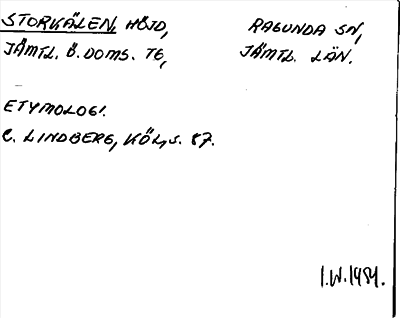 STORKÄLEN, HÖJD, RAGUNDA SN,
JÄMTL. Ö. DOMS. TG, JÄMTL. LÄN.
ETYMOLOGI.
C. LINDBERG, KÖL, S. 87.
I.W. 1984.